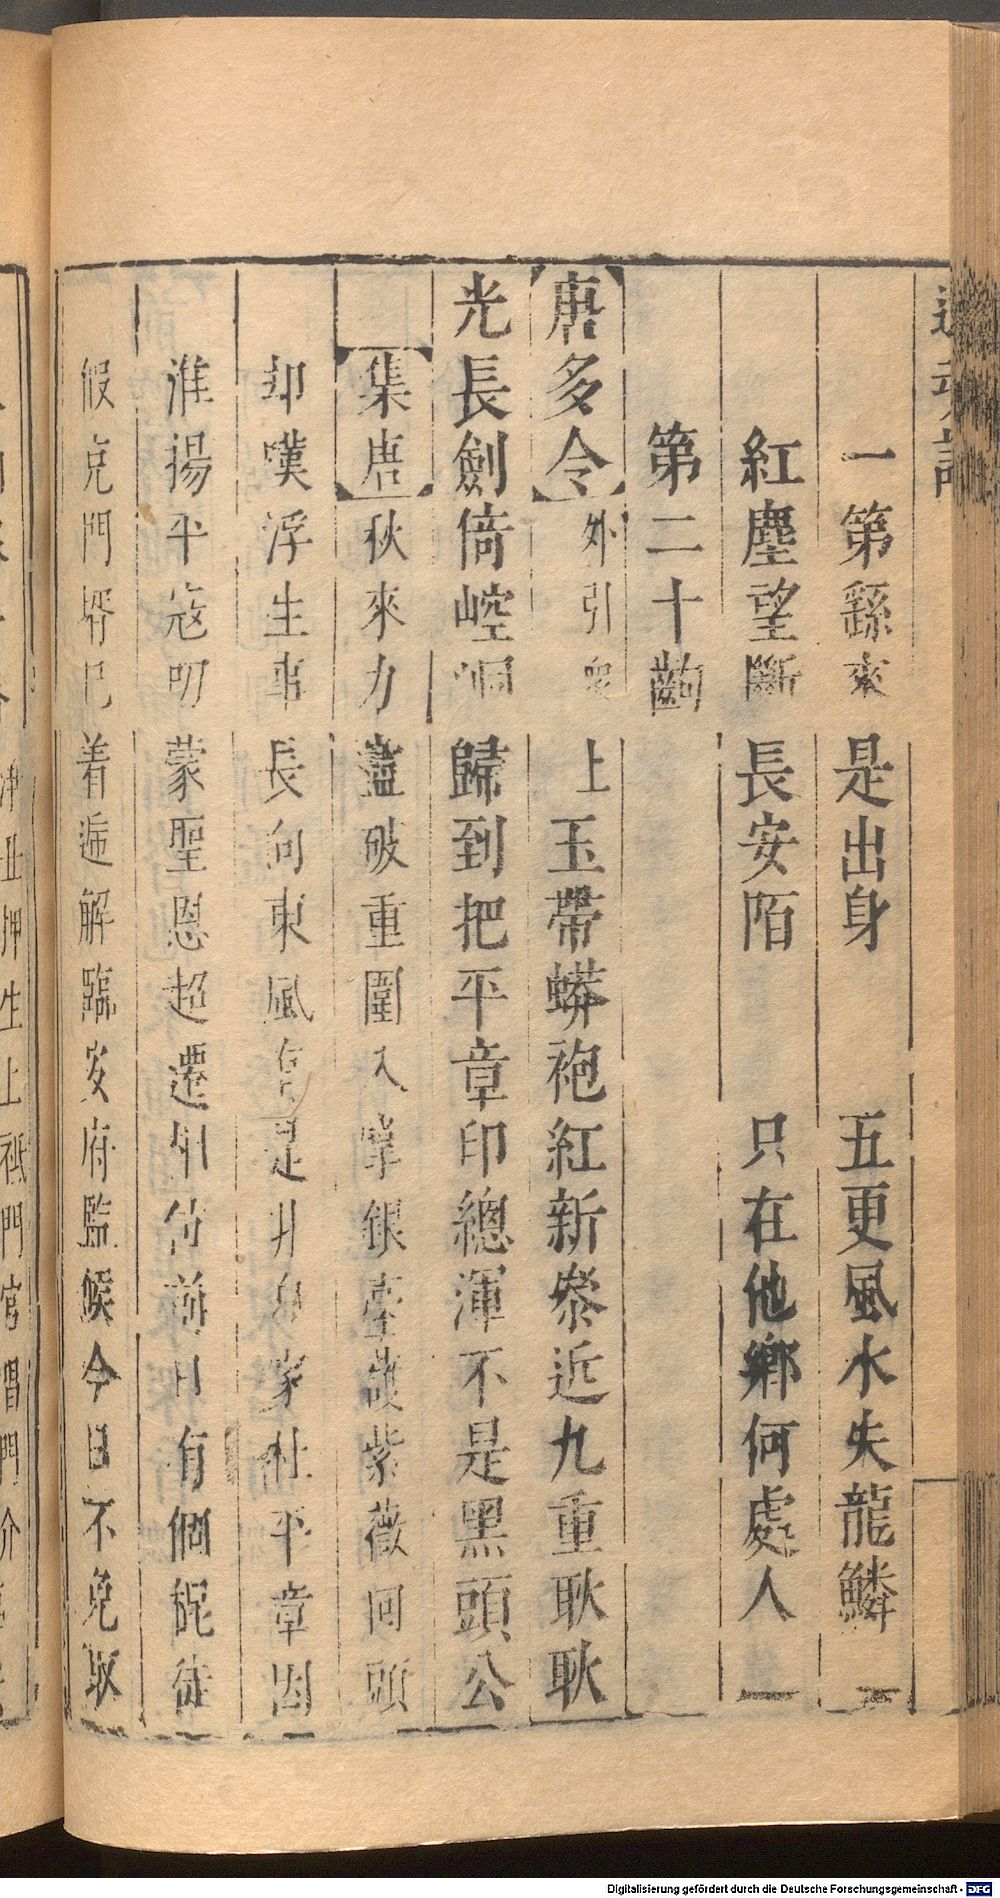 一第繇來是出身　五更風水失龍鱗
紅塵望斷長安陌　只在他鄉何處人
第二十齣
唐多令 外引衆上玉帶蟒袍紅新叅近九重耿耿
光長劍倚崆峒歸到把平章印總渾不是黑頭公
集唐 秋來力盡破重圍入掌銀臺護紫薇回頭
却嘆浮生事長向東風是非家杜平章因
淮揚平寇叨蒙聖恩超遷相位前日有個棍徒
假充門壻已着遞解臨安府監候今日不免取
Digitalisierung gefördert durch die Deutsche Forschungsgemeinschaft - DFG